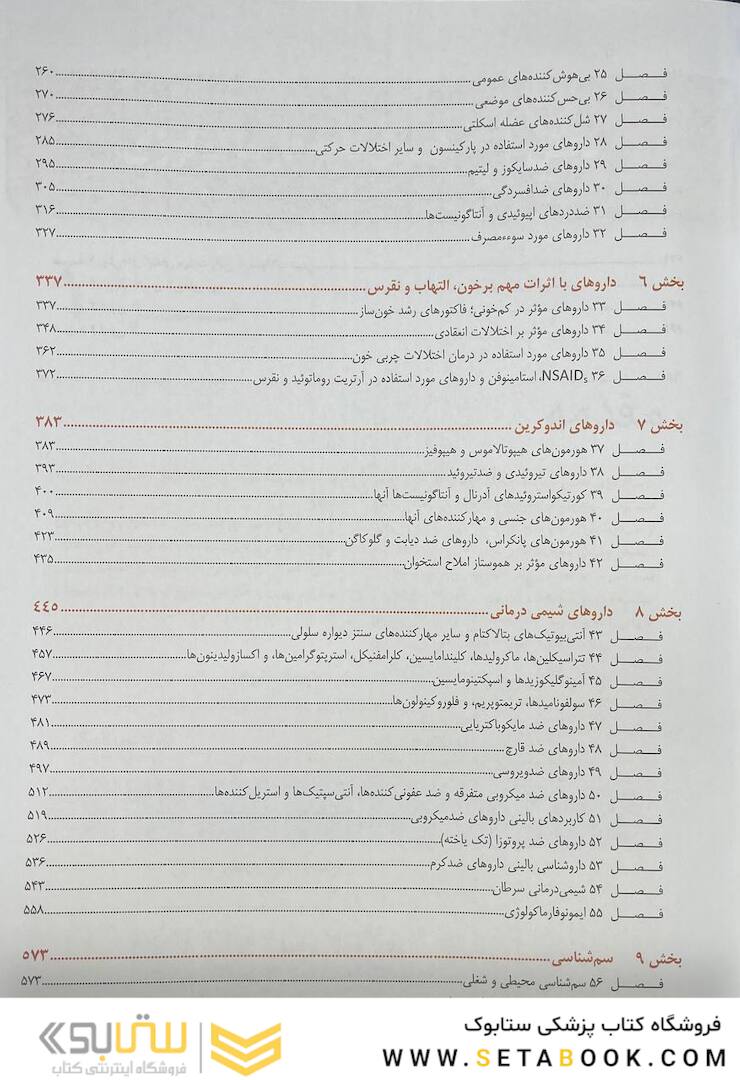 فصل ۲۵ بی‌هوش‌کننده‌های عمومی ۲۶۰
فصل ۲۶ بی‌حس‌کننده‌های موضعی ۲۷۰
فصل ۲۷ شل‌کننده‌های عضله اسکلتی ۲۷۶
فصل ۲۸ داروهای مورد استفاده در پارکینسون و سایر اختلالات حرکتی ۲۸۵
فصل ۲۹ داروهای ضدسایکوز و لیتیم ۲۹۵
فصل ۳۰ داروهای ضدافسردگی ۳۰۵
فصل ۳۱ ضددردهای اپیوئیدی و آنتاگونیست‌ها ۳۱۶
فصل ۳۲ داروهای مورد سوءمصرف ۳۲۷
بخش ۶ داروهای با اثرات مهم برخون، التهاب و نقرس ۳۳۷
فصل ۳۳ داروهای مؤثر در کم‌خونی؛ فاکتورهای رشد خون‌ساز ۳۳۷
فصل ۳۴ داروهای مؤثر بر اختلالات انعقادی ۳۴۸
فصل ۳۵ داروهای مورد استفاده در درمان اختلالات چربی خون ۳۶۲
فصل ۳۶ NSAIDs، استامینوفن و داروهای مورد استفاده در آرتریت روماتوئید و نقرس ۳۷۲
بخش ۷ داروهای اندوکرین ۳۸۳
فصل ۳۷ هورمون‌های هیپوتالاموس و هیپوفیز ۳۸۳
فصل ۳۸ داروهای تیروئیدی و ضدتیروئید ۳۹۳
فصل ۳۹ کورتیکواستروئیدهای آدرنال و آنتاگونیست‌ها آنها ۴۰۰
فصل ۴۰ هورمون‌های جنسی و مهارکننده‌های آنها ۴۰۹
فصل ۴۱ هورمون‌های پانکراس، داروهای ضد دیابت و گلوکاگن ۴۲۳
فصل ۴۲ داروهای مؤثر بر هموستاز املاح استخوان ۴۳۵
بخش ۸ داروهای شیمی درمانی ۴۴۵
فصل ۴۳ آنتی‌بیوتیک‌های بتالاکتام و سایر مهارکننده‌های سنتز دیواره سلولی ۴۴۶
فصل ۴۴ تتراسیکلین‌ها، ماکرولیدها، کلیندامایسین، کلرامفنیکل، استرپتوگرامین‌ها، و اکسازولیدینون‌ها ۴۵۷
فصل ۴۵ آمینوگلیکوزیدها و اسپکتینومایسین ۴۶۷
فصل ۴۶ سولفونامیدها، تریمتوپریم، و فلوروکینولون‌ها ۴۷۳
فصل ۴۷ داروهای ضد مایکوباکتریایی ۴۸۱
فصل ۴۸ داروهای ضد قارچ ۴۸۹
فصل ۴۹ داروهای ضدویروسی ۴۹۷
فصل ۵۰ داروهای ضد میکروبی متفرقه و ضد عفونی‌کننده‌ها، آنتی‌سپتیک‌ها و استریل‌کننده‌ها ۵۱۲
فصل ۵۱ کاربردهای بالینی داروهای ضدمیکروبی ۵۱۹
فصل ۵۲ داروهای ضد پروتوزا (تک یاخته) ۵۲۶
فصل ۵۳ داروشناسی بالینی داروهای ضدکرم ۵۳۶
فصل ۵۴ شیمی‌درمانی سرطان ۵۴۳
فصل ۵۵ ایمونوفارماکولوژی ۵۵۸
بخش ۹ سم‌شناسی ۵۷۳
فصل ۵۶ سم‌شناسی محیطی و شغلی ۵۷۳
فروشگاه کتاب پزشکی ستابوک
WWW.SETABOOK.COM
ستابوک
فروشگاه اینترنتی کتاب